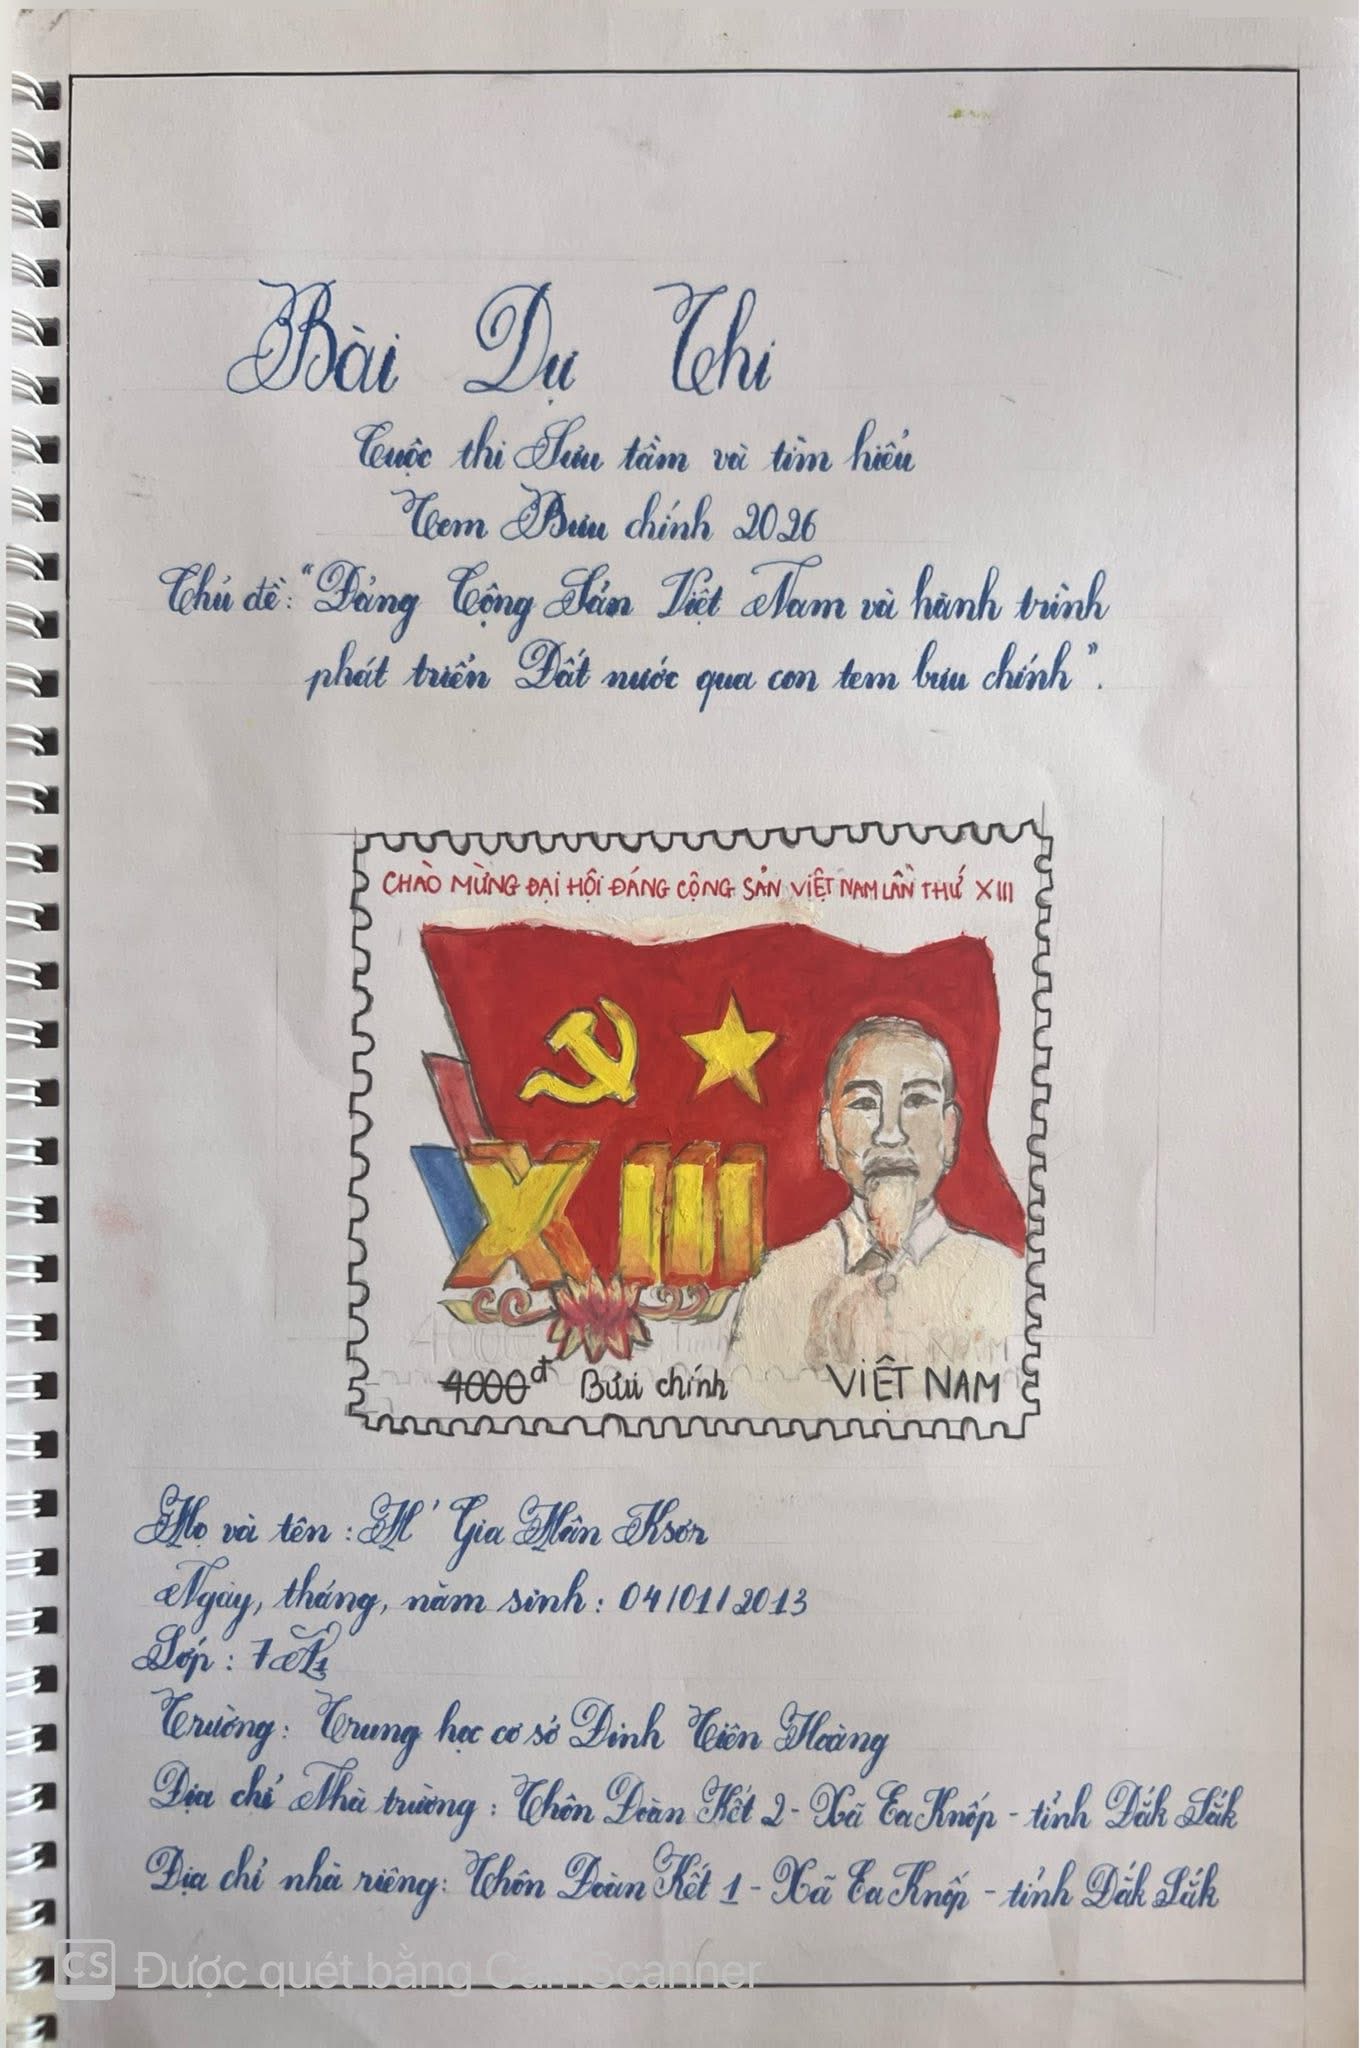 Bài Dự Thi
Cuộc thi Sưu tầm và tìm hiểu
Tem Bưu chính 2026
Chủ đề: "Đảng Cộng Sản Việt Nam và hành trình
phát triển Đất nước qua con tem bưu chính".
CHÀO MỪNG ĐẠI HỘI ĐẢNG CỘNG SẢN VIỆT NAM LẦN THỨ XIII
XIII
4000đ Bưu chính VIỆT NAM
Họ và tên: H' Gia Hân Ksơr
Ngày, tháng, năm sinh: 04/01/2013
Lớp: 7A1
Trường: Trung học cơ sở Đinh Tiên Hoàng
Địa chỉ Nhà trường: Thôn Đoàn Kết 2 - Xã Ea Knốp - tỉnh Đắk Lắk
Địa chỉ nhà riêng: Thôn Đoàn Kết 1 - Xã Ea Knốp - tỉnh Đắk Lắk
CS Được quét bằng CamScanner